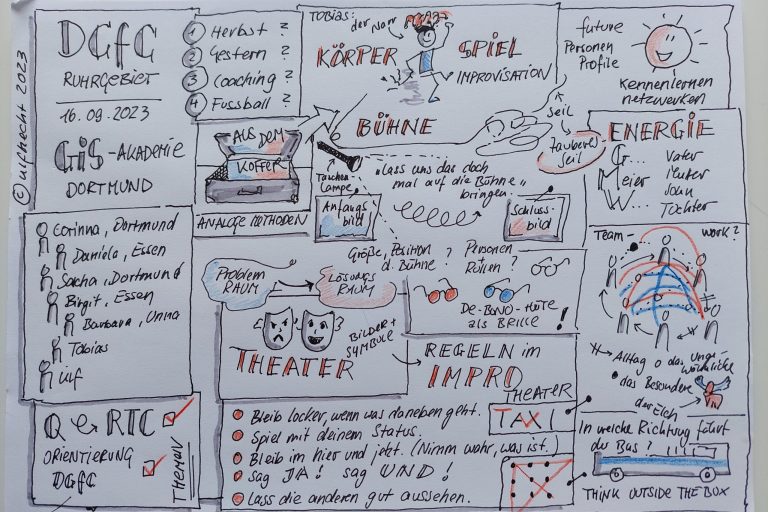 © Ulfhecht 2023
DGfC
RUHRGEBIET
16.09.2023
GiS-AKADEMIE
DORTMUND
1 Herbst ?
2 Gestern ?
3 Coaching ?
4 Fussball ?
TOBIAS:
der Narr
KÖRPER SPIEL
IMPROVISATION
BÜHNE
future
Personen
Profile
Kennenlernen
netzwerken
Seil
Zauberseil
ENERGIE
G... Vater
Meier
W... Sohn
Tochter
AUS DEM
KOFFER
ANALOGE METHODEN
Taschen-
Lampe
"Lass uns das doch
mal auf die Bühne"
bringen.
Anfangs
bild
Schluss-
bild
Corinna, Dortmund
Daniela, Essen
Sacha, Dortmund
Birgit, Essen
Barbara, Unna
Tobias
Ulf
Größe, Position
d. Bühne ?
Personen
+
Rollen ?
Problem
RAUM
LÖSUNGS
RAUM
DE-BONO-HÜTE
als BRILLE !
THEATER
BILDER +
SYMBOLE
REGELN im
IMPRO
THEATER
Team- work?
Alltag o das Unge-
wöhnliche
das Besondere
der Elch
Q RTC
ORIENTIERUNG
DGfC
THEMEN
Bleib locker, wenn was daneben geht.
Spiel mit deinem Status.
Bleib im hier und jetzt. (Nimm wahr, was ist.)
Sag JA! sag UND!
Lass die anderen gut aussehen.
TAXI
In welche Richtung fährt
der Bus ?
THINK OUTSIDE THE BOX